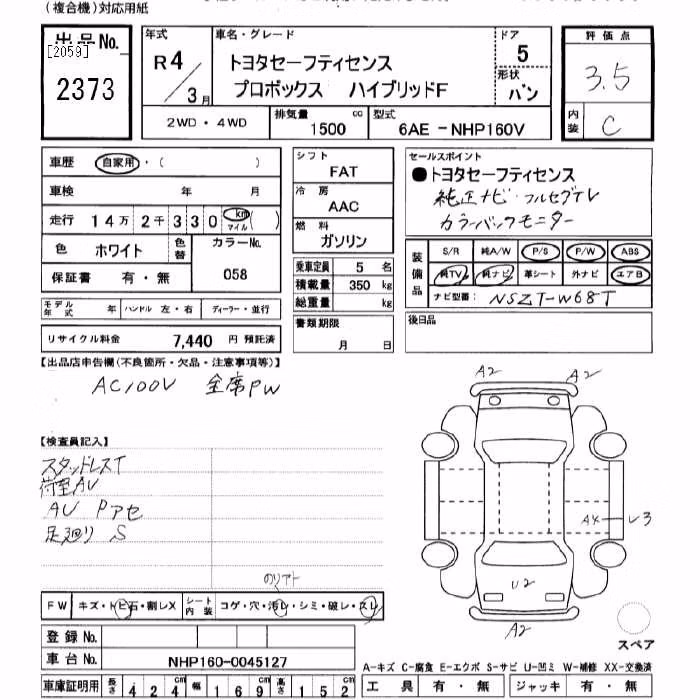 (複合機)対応用紙
出品No.
[2059]
2373
年式
R4/3月
車名・グレード
トヨタセーフティセンス
プロボックス ハイブリッドF
ドア
5
形状
バン
評価点
3.5
内装
C
2WD・4WD
排気量
1500 cc
型式
6AE-NHP160V
車歴 自家用・( )
車検 年 月
走行 14万2千330 km マイル ( )
色 ホワイト 色替
カラーNo.
058
保証書 有・無
モデル年式 年 ハンドル 左・右 ディーラー・並行
リサイクル料金 7,440 円 預託済
シフト
FAT
冷房
AAC
燃料
ガソリン
乗車定員 5 名
積載量 350 kg
総重量 kg
書類期限
月 日
セールスポイント
●トヨタセーフティセンス
純正ナビ・フルセグTV
カラーバックモニター
装備品
S/R 純A/W P/S P/W ABS
純TV 純ナビ 革シート 外ナビ エアB
ナビ型番: NSZT-W68T
後日品
【出品店申告欄(不良箇所・欠品・注意事項等)】
AC100V 全席PW
【検査員記入】
スタッドレスT
荷室AU
AU Pアセ
足廻りS
A2
A2
A4
U3
U2
A2
スペア
のりアト
FW キズ・トビ石・割レX
シート内装 コゲ・穴・汚レ・シミ・破レ・スレ
登録No.
車台No. NHP160-0045127
車庫証明用 長さ 424 cm 幅 169 cm 高さ 152 cm
A-キズ C-腐食 E-エクボ S-サビ U-凹ミ W-補修 XX-交換済
工具 有・無 ジャッキ 有・無